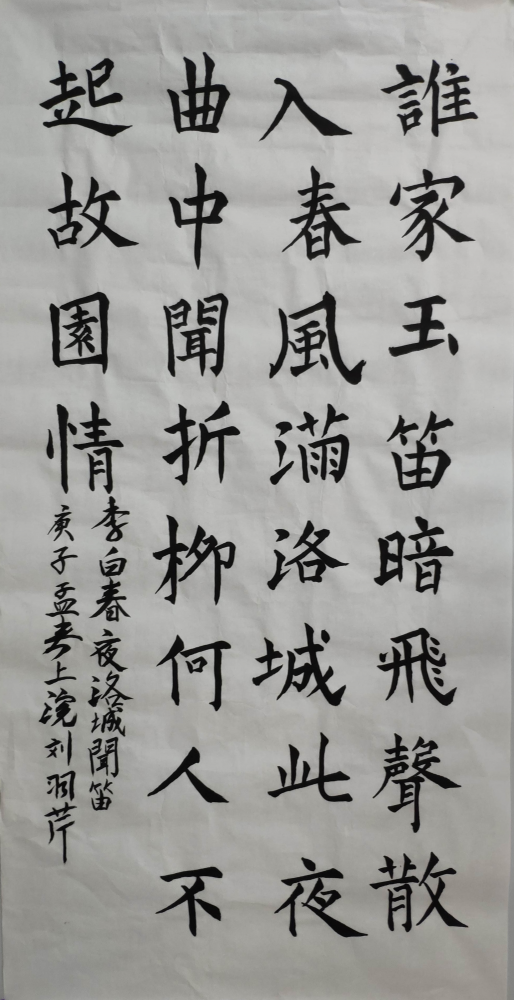 誰家玉笛暗飛聲散
入春風滿洛城此夜
曲中聞折柳何人不
起故園情
李白春夜洛城聞笛
庚子孟春上浣刘羽芹